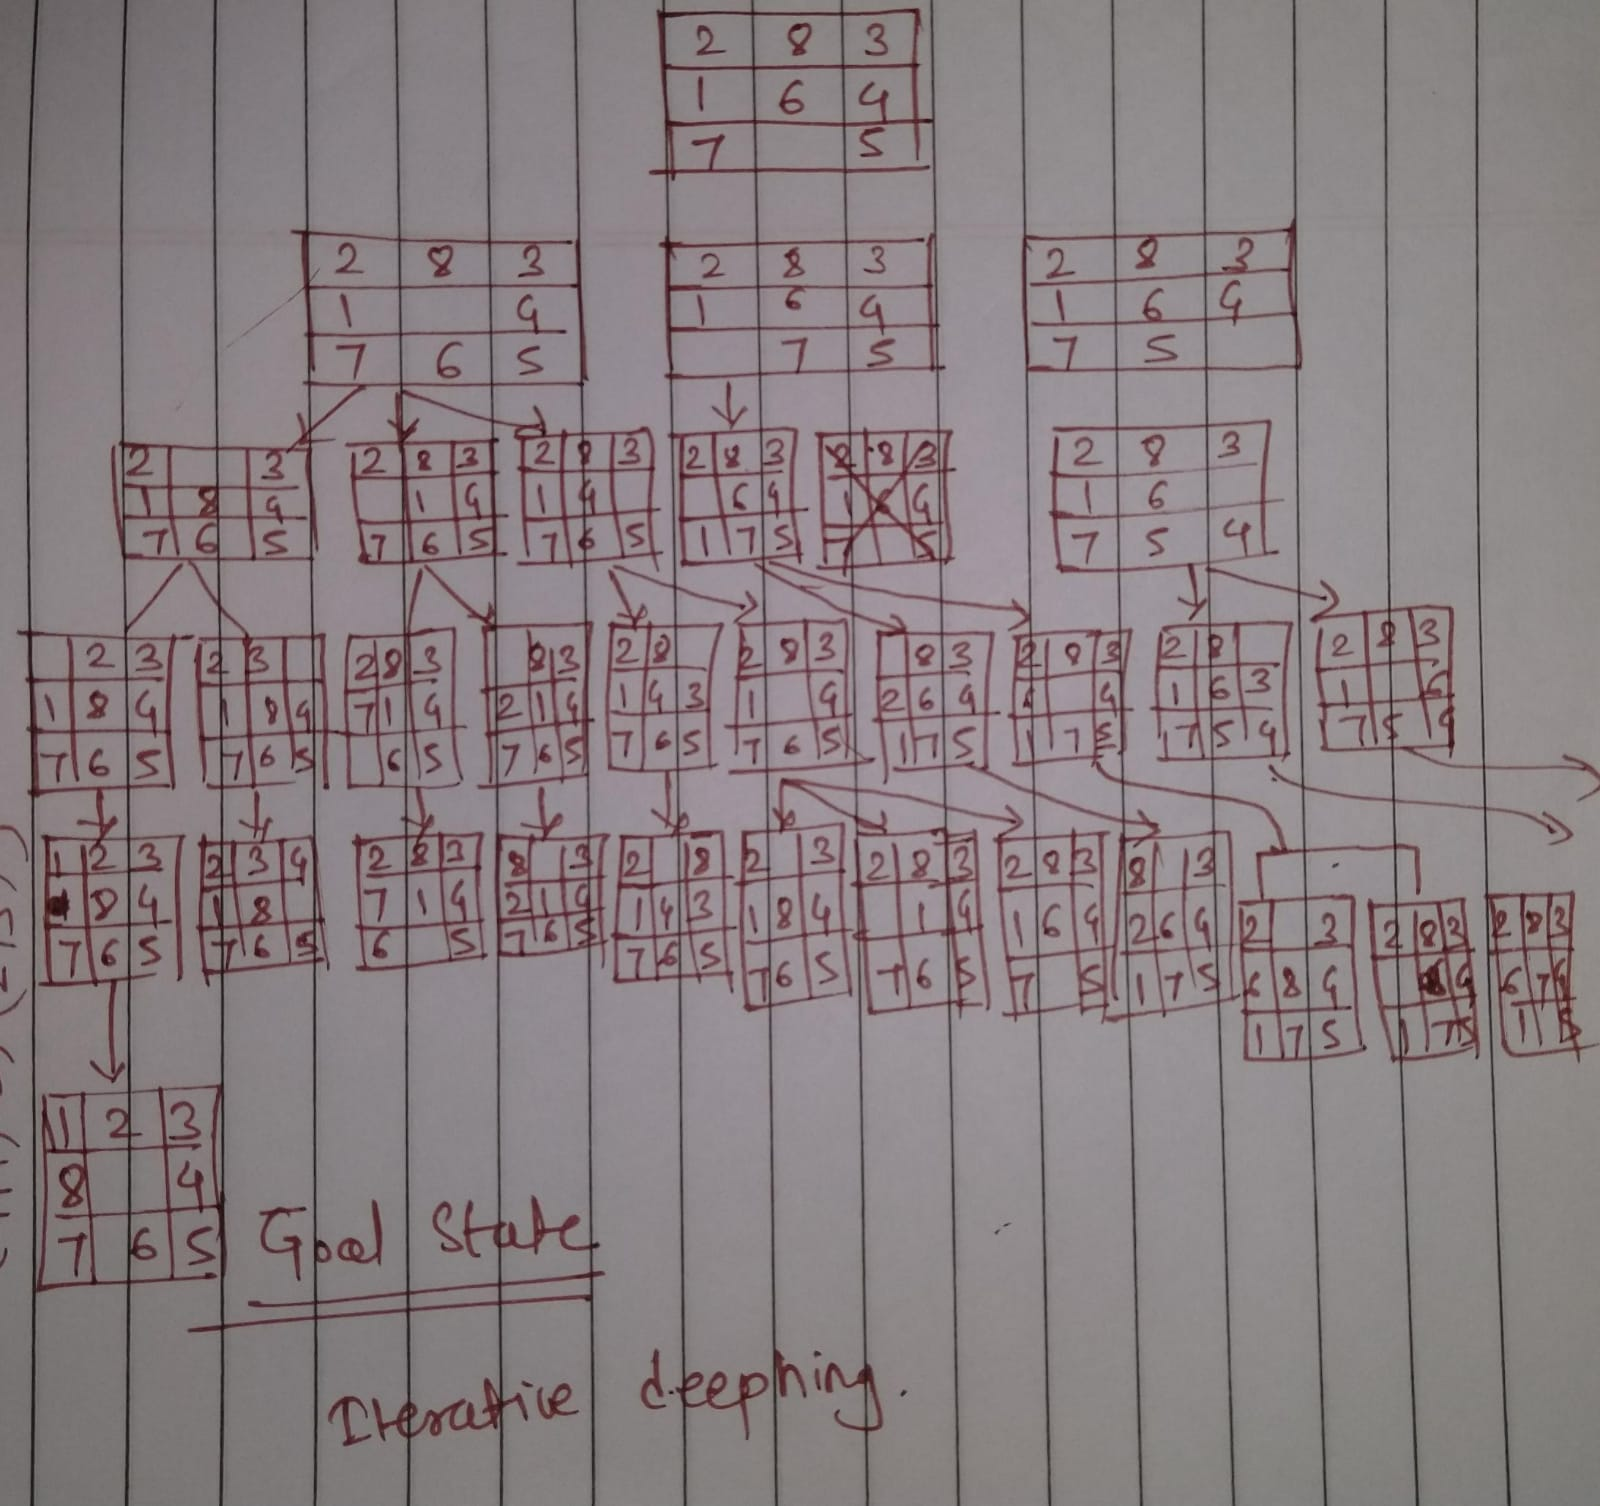 2 8 3
1 6 4
7 5
2 8 3
1 4
7 6 5
2 8 3
1 6 4
7 5
2 8 3
1 6 4
7 5
2 3
1 8 4
7 6 5
2 8 3
1 4
7 6 5
2 8 3
1 4
7 6 5
2 8 3
6 4
1 7 5
2 8 3
1 6 4
7 5
2 8 3
1 6
7 5 4
2 3
1 8 4
7 6 5
2 3
1 8 4
7 6 5
2 8 3
7 1 4
6 5
8 3
2 1 4
7 6 5
2 8
1 4 3
7 6 5
2 8 3
1 4
7 6 5
8 3
2 6 4
1 7 5
2 8 3
4
1 7 5
2 8
1 6 3
7 5 4
2 8 3
1 6
7 5 4
1 2 3
8 4
7 6 5
2 3 4
1 8
7 6 5
2 8 3
7 1 4
6 5
8 3
2 1 4
7 6 5
2 8
1 4 3
7 6 5
2 3
1 8 4
7 6 5
2 8 3
1 4
7 6 5
2 8 3
1 6 4
7 5
8 3
2 6 4
1 7 5
2 3
6 8 4
1 7 5
2 8 3
4
1 7 5
2 8 3
6 7 4
1
1 2 3
8 4
7 6 5
Goal State
Iterative deephing.